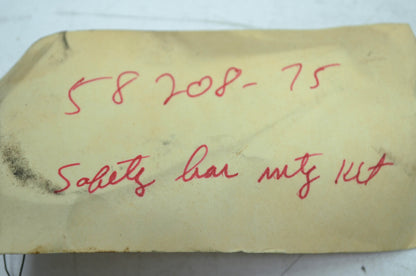 58208-75
Safety bar mtg kit